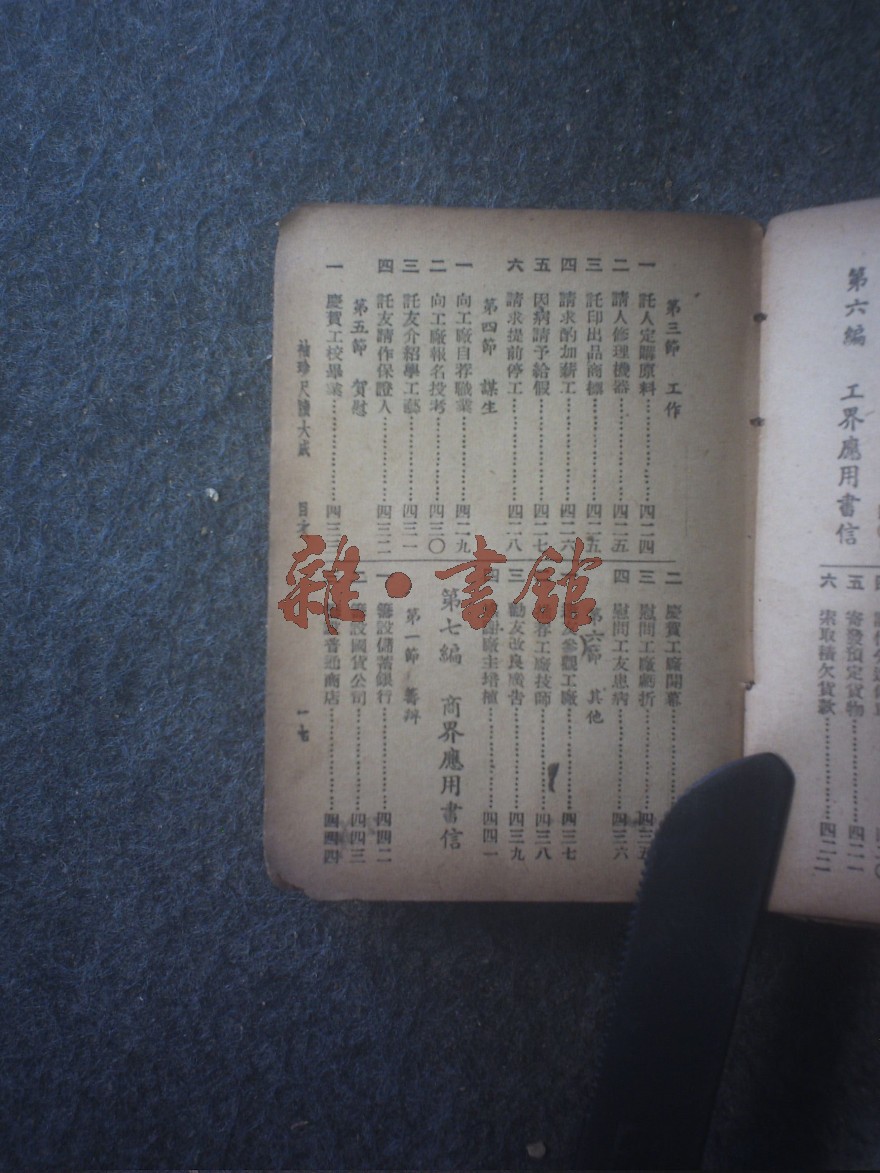 第六編 工界應用書信
五 寄發預定貨物……四二一
六 索取積欠貨款……四二二
第三節 工作
一 託人定購原料……四二四
二 請人修理機器……四二五
三 託印出品商標……四二五
四 請求酌加薪工……四二六
五 因病請予給假……四二七
六 請求提前停工……四二八
第四節 謀生
一 向工廠自荐職業……四二九
二 向工廠報名投考……四三〇
三 託友介紹學工藝……四三一
四 託友請作保證人……四三二
第五節 賀慰
一 慶賀工校畢業……四三三
二 慶賀工廠開幕
三 慰問工廠虧折……四三五
四 慰問工友患病……四三六
第六節 其他
參觀工廠……四三七
荐工廠技師……四三八
三 勸友改良廣告……四三九
四 謝廠主培植……四四一
第七編 商界應用書信
第一節 籌辦
一 籌設儲蓄銀行……四四二
二 籌設國貨公司……四四三
普通商店……四四四
袖珍尺牘大成 目次 一七
雜·書館